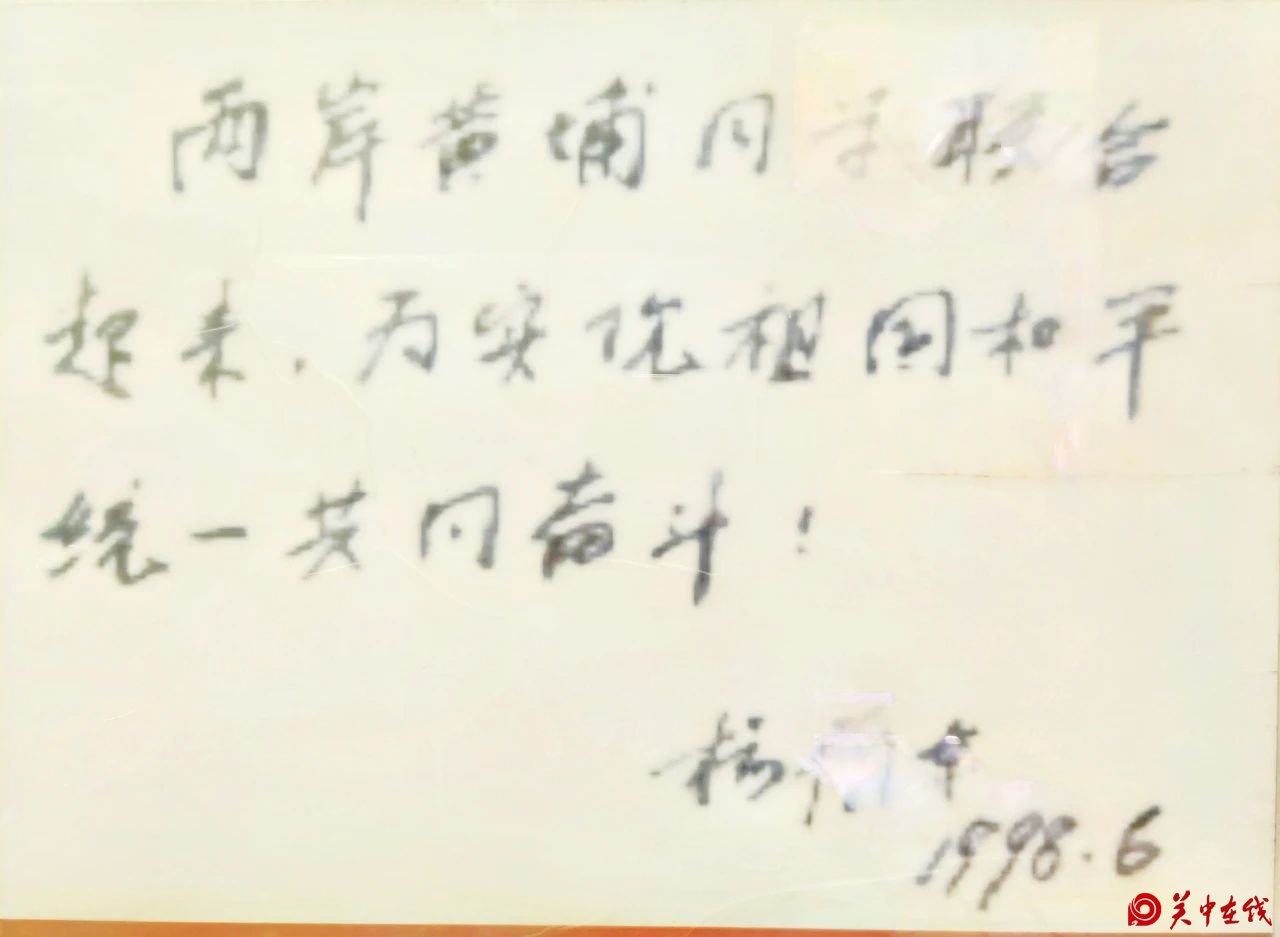 两岸黄埔同学联合
起来，为实现祖国和平
统一共同奋斗！
杨
1998.6
关中在线